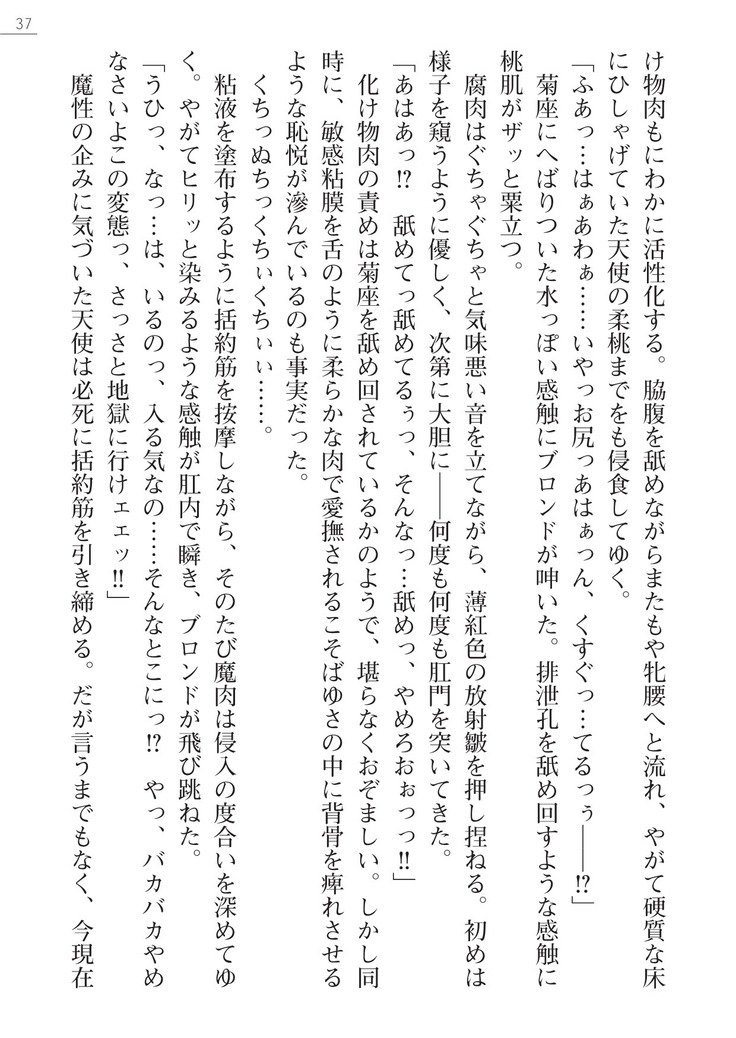 37
け物肉もにわかに活性化する。脇腹を舐めながらまたもや牝腰へと流れ、やがて硬質な床
にひしゃげていた天使の柔桃までをも侵食してゆく。
「ふあっ…はぁあわぁ……いやっお尻っあはぁっん、くすぐっ…てるっぅ――⁉」
菊座にへばりついた水っぽい感触にブロンドが呻いた。排泄孔を舐め回すような感触に
桃肌がザッと粟立つ。
腐肉はぐちゃぐちゃと気味悪い音を立てながら、薄紅色の放射皺を押し捏ねる。初めは
様子を窺うように優しく、次第に大胆に――何度も何度も肛門を突いてきた。
「あはあっ⁉　舐めてっ舐めてるぅっ、そんなっ…舐めっ、やめろおぉっっ‼」
化け物肉の責めは菊座を舐め回されているかのようで、堪らなくおぞましい。しかし同
時に、敏感粘膜を舌のように柔らかな肉で愛撫されるこそばゆさの中に背骨を痺れさせる
ような恥悦が滲んでいるのも事実だった。
くちっぬちっくちぃくちぃぃ……。
粘液を塗布するように括約筋を按摩しながら、そのたび魔肉は侵入の度合いを深めてゆ
く。やがてヒリッと染みるような感触が肛内で瞬き、ブロンドが飛び跳ねた。
「うひっ、なっ…は、いるのっ、入る気なの……そんなとこにっ⁉　やっ、バカバカやめ
なさいよこの変態っ、さっさと地獄に行けェェッ‼」
魔性の企みに気づいた天使は必死に括約筋を引き締める。だが言うまでもなく、今現在